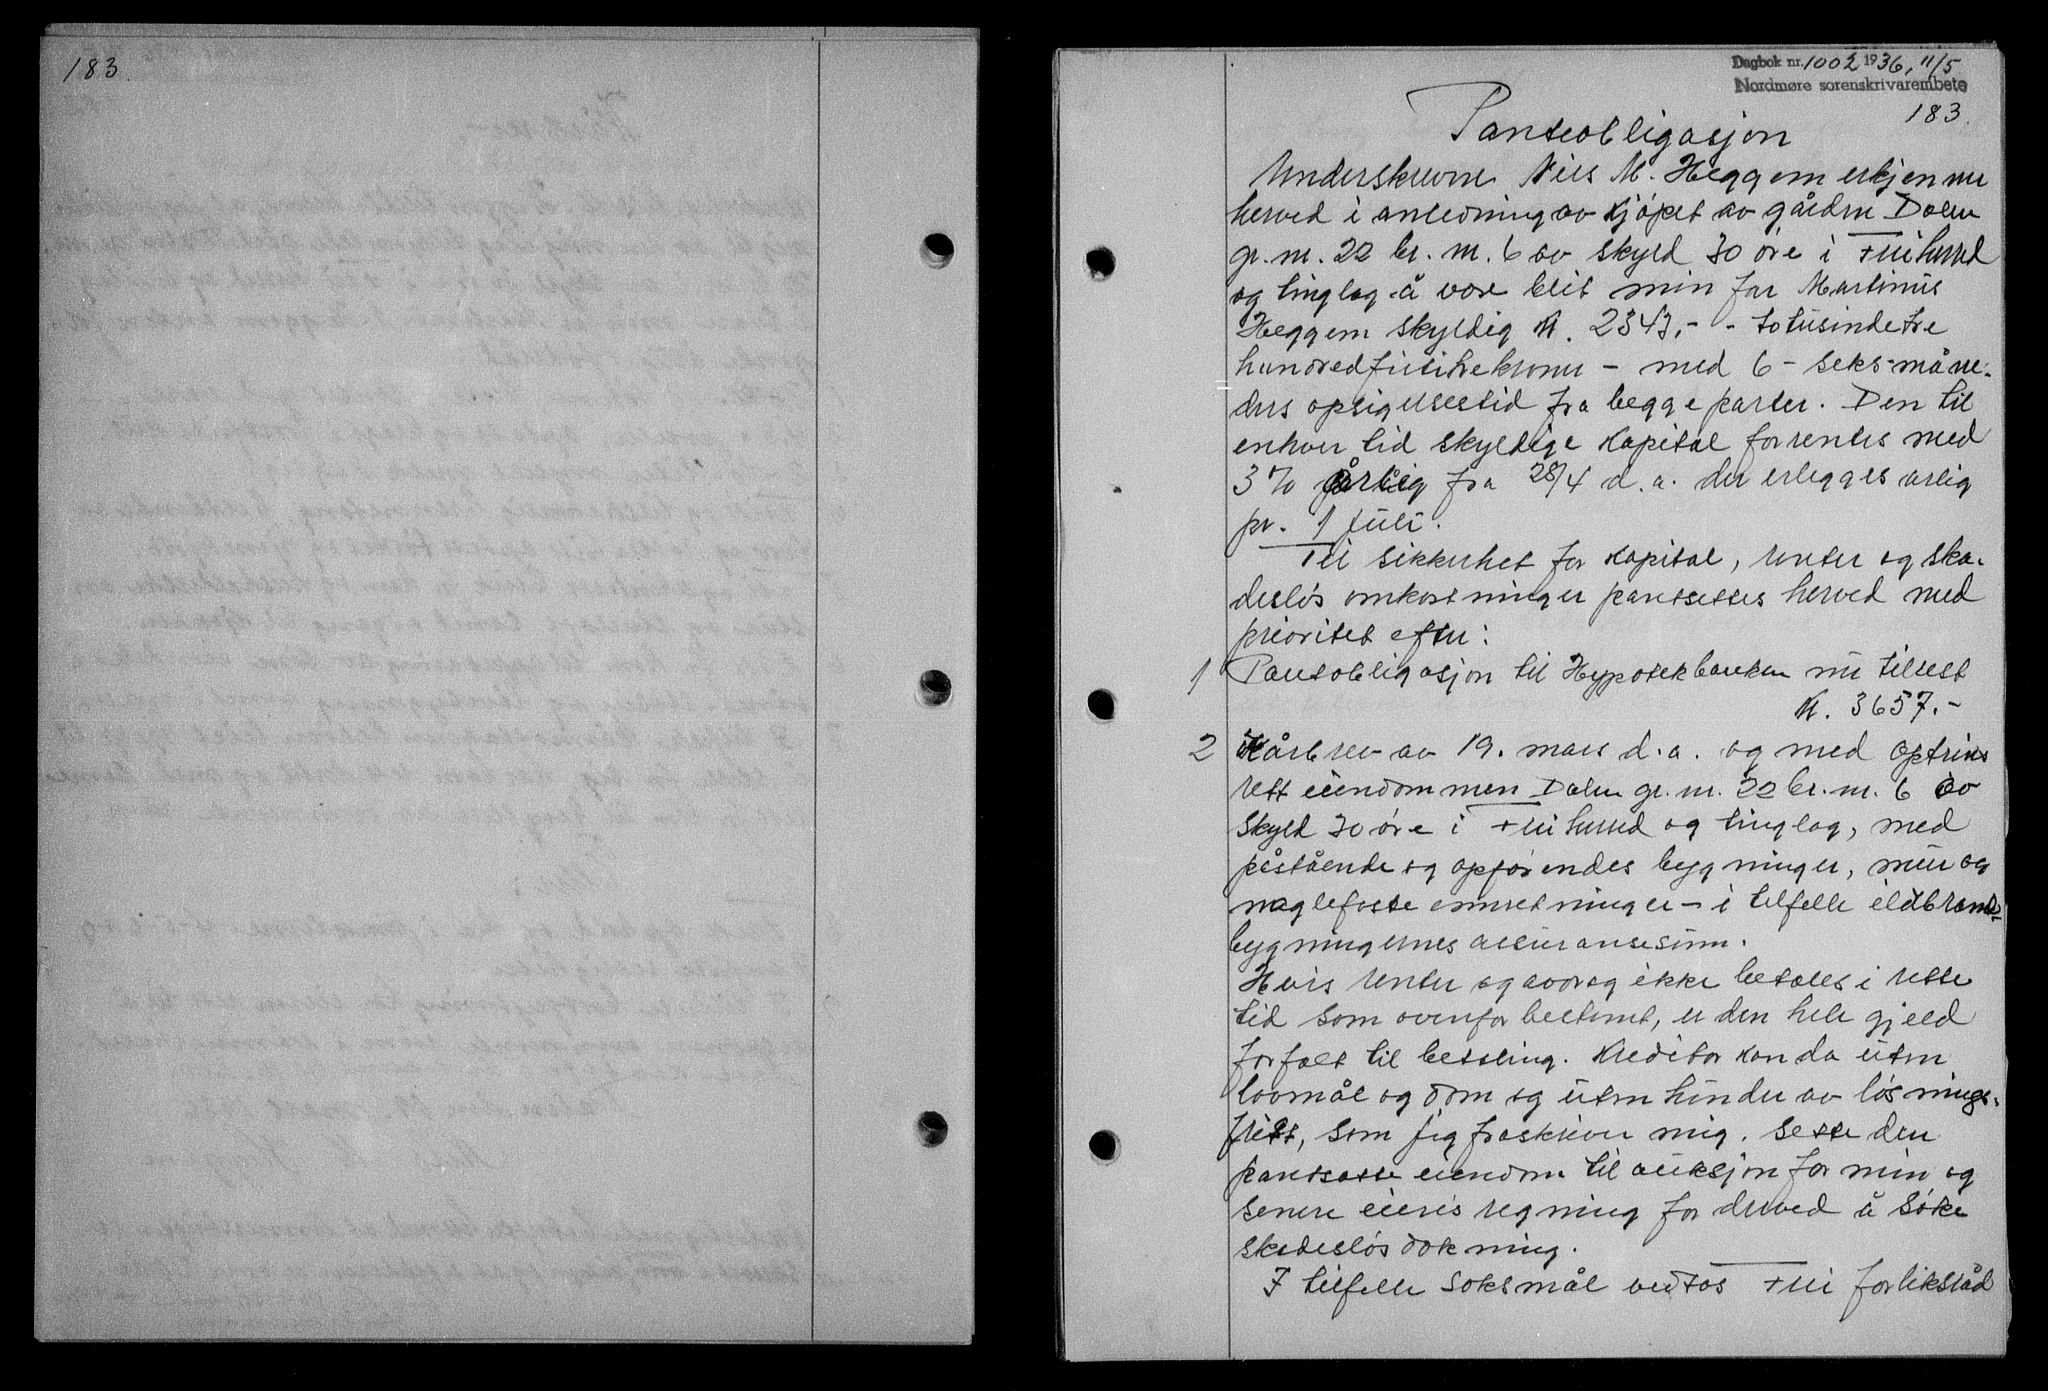 183.
Dagbok nr. 1002 1936, 11/5
Nordmøre sorenskrivarembete
183.
Panteobligasjon
Underskrevne Nils M. Heggem erkjenner
herved i anledning av kjøpet av gården Dalen
gr. nr. 22 br. nr. 6 av skyld 30 øre i Frei herred
og tinglag å være blit min far Martinus
Heggem skyldig kr. 2343,- - totusindetre
hundredførtitrekroner - med 6 - seks-måne-
ders opsigelsestid fra begge parter. Den til
enhver tid skyldige kapital forrentes med
3 % årlig fra 28/4 d.a. der erlegges årlig
pr. 1 juli.
Til sikkerhet for kapital, renter og ska-
desløs omkostninger pantsettes herved med
prioritet efter:
1 Pantobligasjon til Hypotekbanken nu tilrest
kr. 3657.-
2 Kårbrev av 19. mars d.a. og med optrins
rett eiendommen Dalen gr. nr. 22 br. nr. 6 av
skyld 30 øre i Frei herred og tinglag, med
påstående og opførendes bygninger, mur og
naglefaste innretninger - i tilfelle ildbrand-
bygningernes assuransesum.
Hvis renter og avdrag ikke betales i rette
tid som ovenfor bestemt, er den hele gjeld
forfalt til betaling. Kreditor kan da uten
lovmål og dom og uten hinder av løsnings-
frist, som jeg fraskriver mig. sette den
pantsatte eiendom til auksjon for min og
senere eieres regning for derved å søke
skadesløs dekning.
I tilfelle søksmål vedtas Frei forliksråd